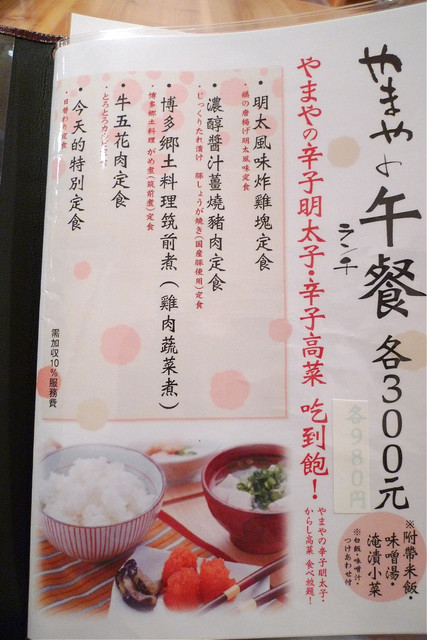 やまやの午餐 各300元
ランチ
各980円
※附帶米飯・
味噌湯・
淹漬小菜
※白飯・味噌汁・
つけあわせ付
やまやの辛子明太子・辛子高菜 吃到飽！
やまやの辛子明太子・
からし高菜 食べ放題！
・明太風味炸雞塊定食
鶏の唐揚げ明太風味定食
・濃醇醬汁薑燒豬肉定食
じっくりたれ漬け 豚しょうが焼き(国産豚使用)定食
・博多鄉土料理筑前煮(雞肉蔬菜煮)
博多郷土料理 がめ煮(筑前煮)定食
・牛五花肉定食
・今天的特別定食
・日替わり定食
需加収10%服務費